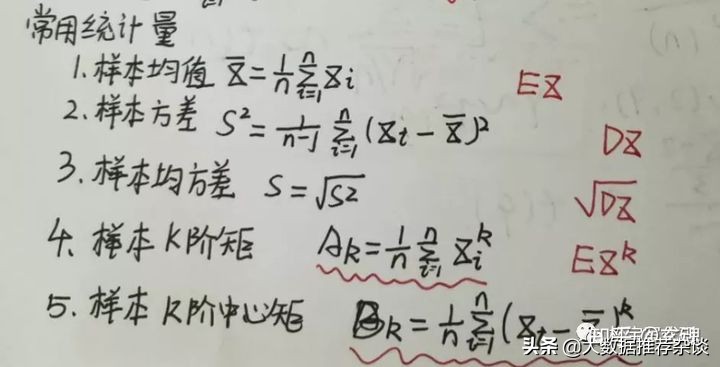 常用统计量
1. 样本均值 X̄ = 1/n ∑_{i=1}^{n} X_i EX
2. 样本方差 S² = 1/(n-1) ∑_{i=1}^{n} (X_i - X̄)² DX
3. 样本均方差 S = √S² √DX
4. 样本 K阶矩 A_k = 1/n ∑_{i=1}^{n} X_i^k EX^k
5. 样本 K阶中心矩 B_k = 1/n ∑_{i=1}^{n} (X_i - X̄)^k
头条 @大数据推荐杂谈